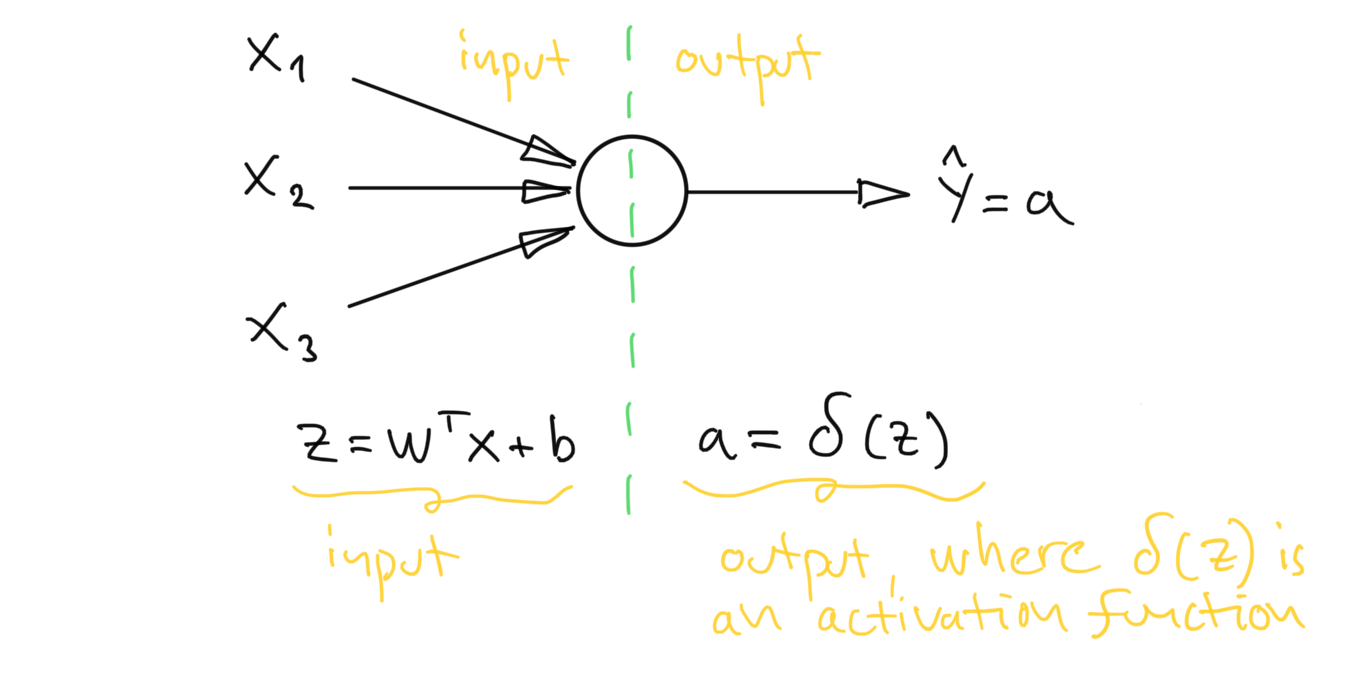 x₁ input output
x₂ ŷ = a
x₃
z = wᵀx + b a = δ(z)
input output, where δ(z) is
an activation function